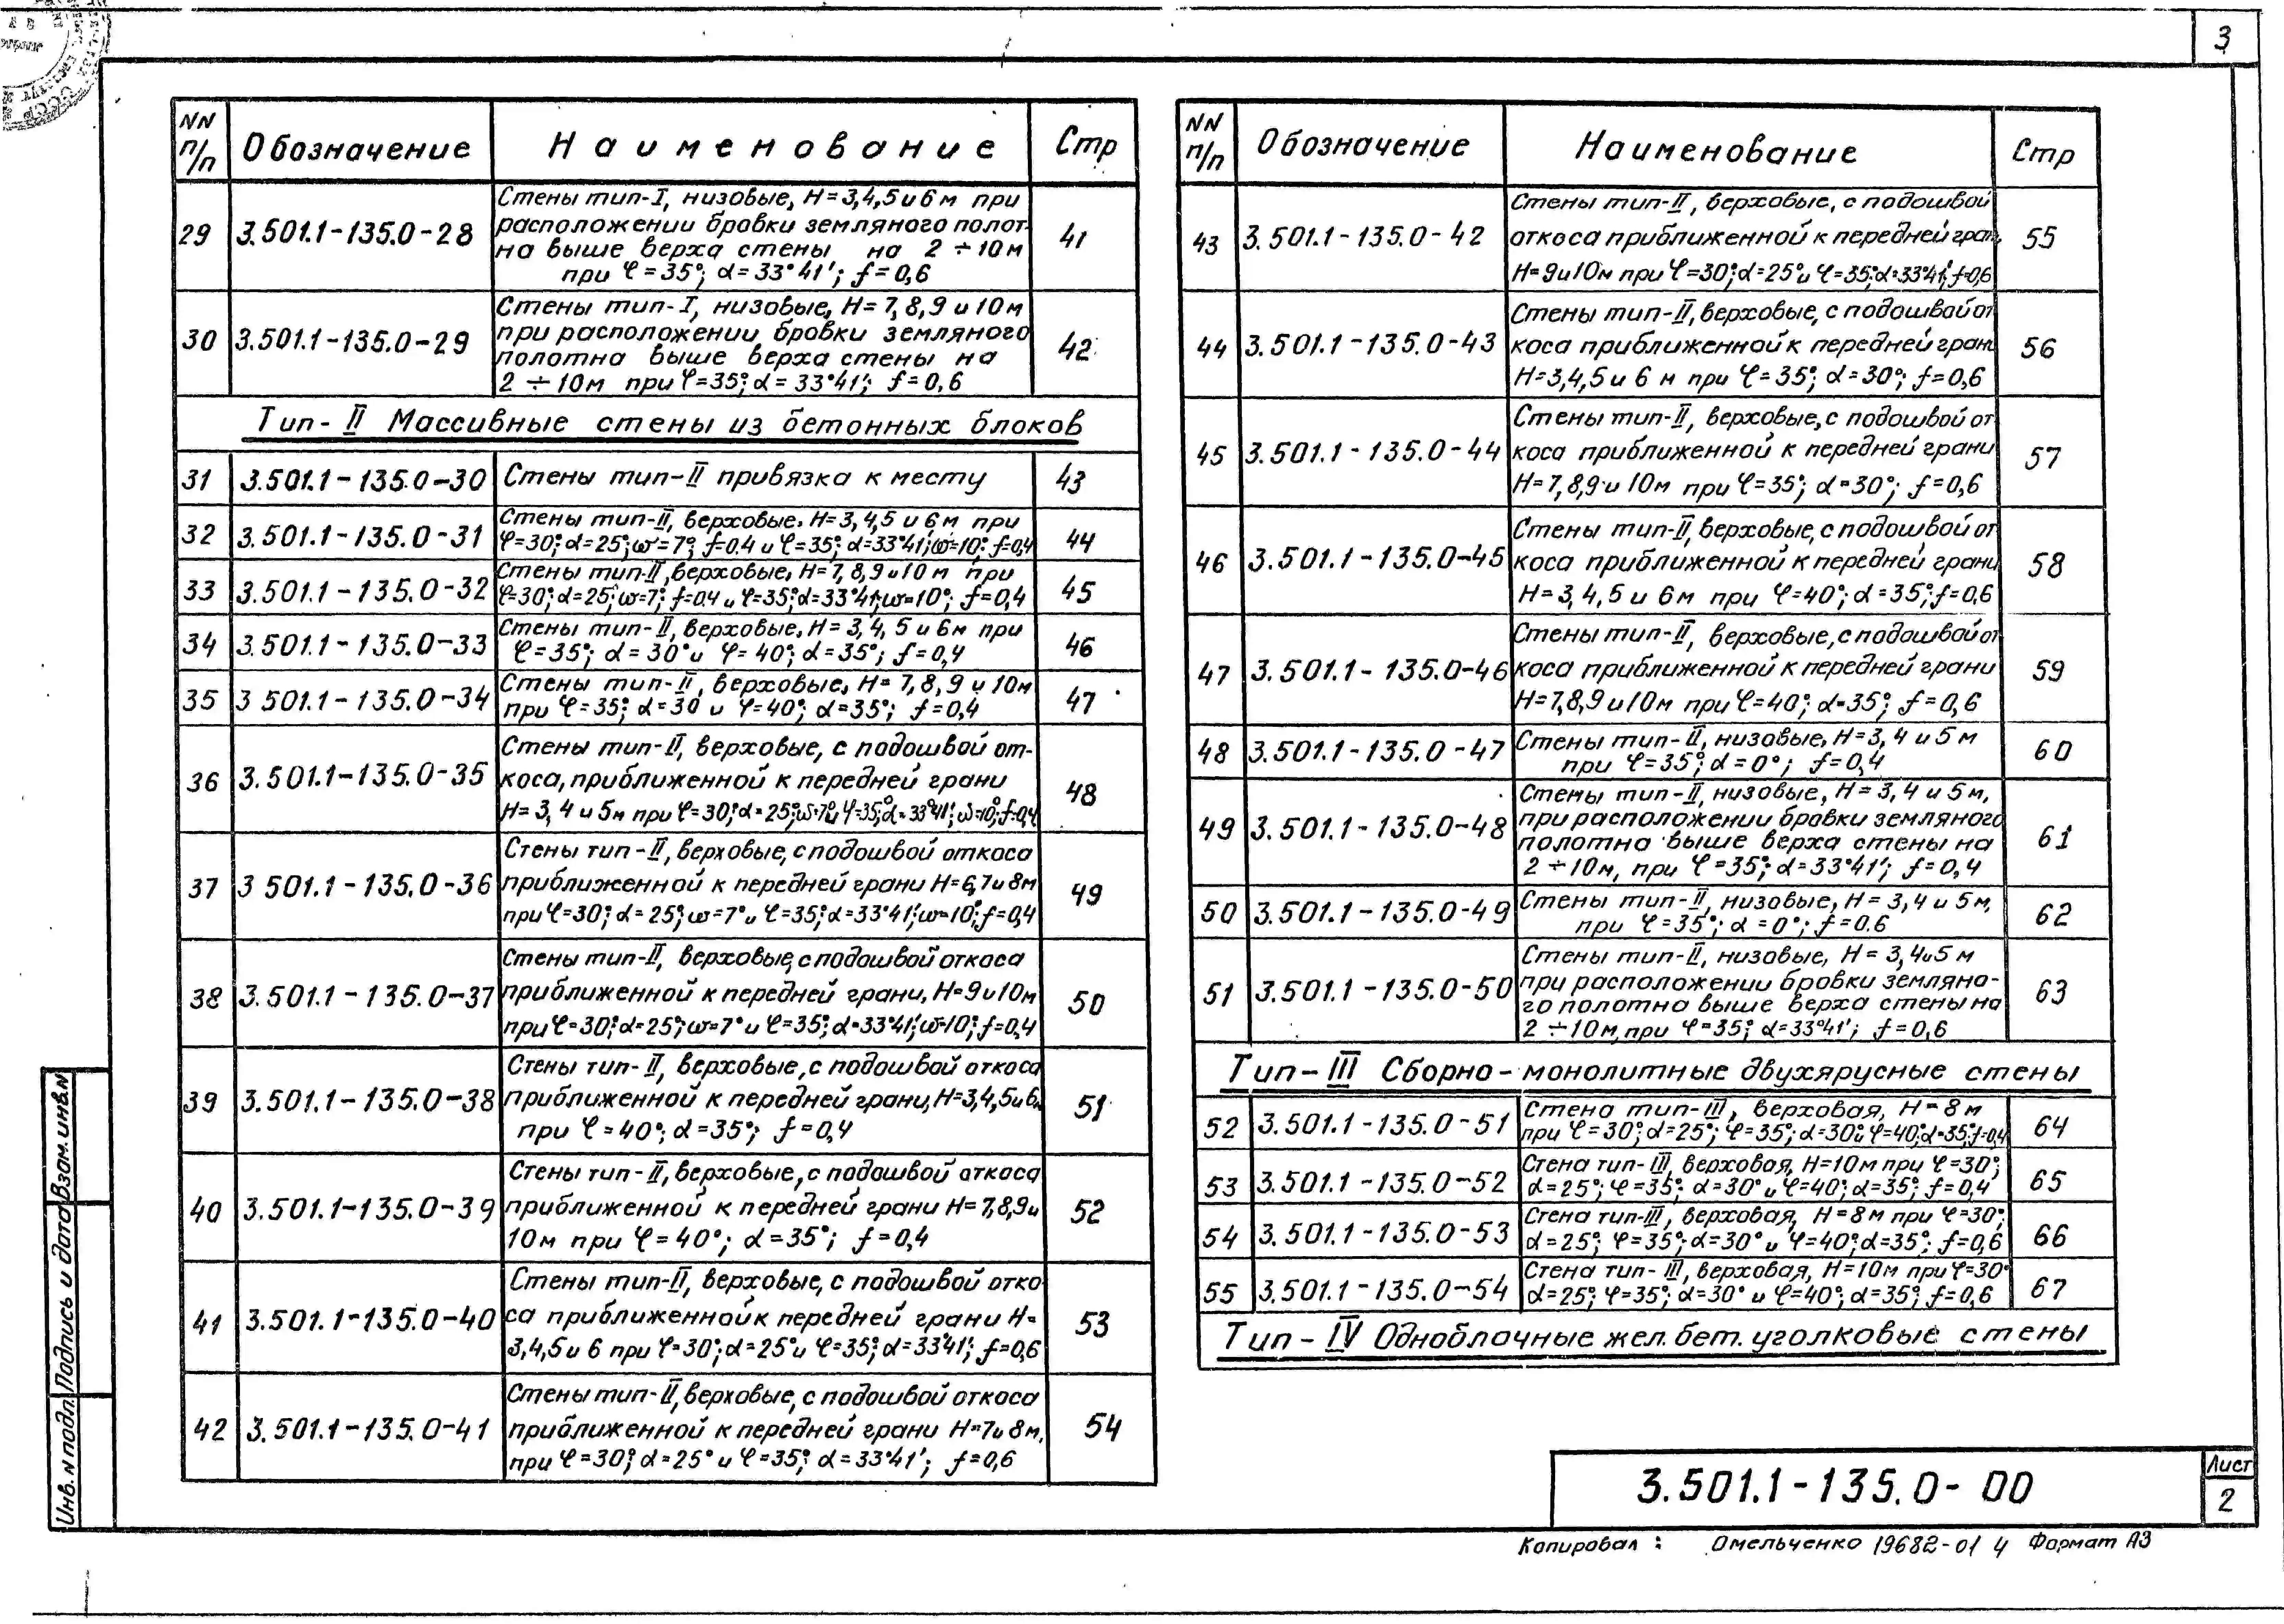 3
NN п/п Обозначение Наименование Стр
29 3.501.1-135.0-28 Стены тип-I, низовые, Н=3,4,5 и 6м при
расположении бровки земляного полот-
на выше верха стены на 2÷10м
при φ=35°; α=33°41'; f=0,6 41
30 3.501.1-135.0-29 Стены тип-I, низовые, Н=7,8,9 и 10м
при расположении бровки земляного
полотна выше верха стены на
2÷10м при φ=35°; α=33°41'; f=0,6 42
Тип-II Массивные стены из бетонных блоков
31 3.501.1-135.0-30 Стены тип-II привязка к месту 43
32 3.501.1-135.0-31 Стены тип-II, верховые. Н=3,4,5 и 6м при
φ=30°; α=25°; ω=7°; f=0.4 и φ=35°; α=33°41'; ω=10°; f=0,4 44
33 3.501.1-135.0-32 Стены тип-II, верховые, Н=7,8,9 и 10м при
φ=30°; α=25°; ω=7°; f=0.4 и φ=35°; α=33°41'; ω=10°; f=0,4 45
34 3.501.1-135.0-33 Стены тип-II, верховые, Н=3,4,5 и 6м при
φ=35°; α=30° и φ=40°; α=35°; f=0,4 46
35 3 501.1-135.0-34 Стены тип-II, верховые, Н=7,8,9 и 10м
при φ=35°; α=30 и φ=40°; α=35°; f=0,4 47
36 3.501.1-135.0-35 Стены тип-II, верховые, с подошвой от-
коса, приближенной к передней грани
Н=3,4 и 5м при φ=30°; α=25°; ω=7° и φ=35°; α=33°41'; ω=10°; f=0,4 48
37 3 501.1-135.0-36 Стены тип-II, верховые, с подошвой откоса
приближенной к передней грани Н=6,7 и 8м
при φ=30°; α=25°; ω=7° и φ=35°; α=33°41'; ω=10°; f=0,4 49
38 3.501.1-135.0-37 Стены тип-II, верховые, с подошвой откоса
приближенной к передней грани, Н=9 и 10м
при φ=30°; α=25°; ω=7° и φ=35°; α=33°41'; ω=10°; f=0,4 50
39 3.501.1-135.0-38 Стены тип-II, верховые, с подошвой откоса
приближенной к передней грани, Н=3,4,5 и 6м
при φ=40°; α=35°; f=0,4 51
40 3.501.1-135.0-39 Стены тип-II, верховые, с подошвой откоса
приближенной к передней грани Н=7,8,9 и
10м при φ=40°; α=35°; f=0,4 52
41 3.501.1-135.0-40 Стены тип-II, верховые, с подошвой отко
са приближенной к передней грани Н=
3,4,5 и 6 при φ=30°; α=25° и φ=35°; α=33°41'; f=0,6 53
42 3.501.1-135.0-41 Стены тип-II, верховые, с подошвой откоса
приближенной к передней грани Н=7 и 8м,
при φ=30°; α=25° и φ=35°; α=33°41'; f=0,6 54
NN п/п Обозначение Наименование Стр
43 3.501.1-135.0-42 Стены тип-II, верховые, с подошвой
откоса приближенной к передней гран.
Н=9 и 10м при φ=30°; α=25° и φ=35°; α=33°41'; f=0,6 55
44 3.501.1-135.0-43 Стены тип-II, верховые, с подошвой от
коса приближенной к передней грани
Н=3,4,5 и 6 м при φ=35°; α=30°; f=0,6 56
45 3.501.1-135.0-44 Стены тип-II, верховые, с подошвой от
коса приближенной к передней грани
Н=7,8,9 и 10м при φ=35°; α=30°; f=0,6 57
46 3.501.1-135.0-45 Стены тип-II, верховые, с подошвой от
коса приближенной к передней грани
Н=3,4,5 и 6м при φ=40°; α=35°; f=0,6 58
47 3.501.1-135.0-46 Стены тип-II, верховые, с подошвой от
коса приближенной к передней грани
Н=7,8,9 и 10м при φ=40°; α=35°; f=0,6 59
48 3.501.1-135.0-47 Стены тип-II, низовые, Н=3,4 и 5м
при φ=35°; α=0°; f=0,4 60
49 3.501.1-135.0-48 Стены тип-II, низовые, Н=3,4 и 5м,
при расположении бровки земляного
полотна выше верха стены на
2÷10м, при φ=35°; α=33°41'; f=0,4 61
50 3.501.1-135.0-49 Стены тип-II, низовые, Н=3,4 и 5м,
при φ=35°; α=0°; f=0.6 62
51 3.501.1-135.0-50 Стены тип-II, низовые, Н=3,4 и 5 м
при расположении бровки земляно-
го полотна выше верха стены на
2÷10м, при φ=35°; α=33°41'; f=0,6 63
Тип-III Сборно-монолитные двухярусные стены
52 3.501.1-135.0-51 Стена тип-III, верховая, Н=8м
при φ=30°; α=25°; φ=35°; α=30° и φ=40°; α=35°; f=0,4 64
53 3.501.1-135.0-52 Стена тип-III, верховая, Н=10м при φ=30°;
α=25°; φ=35°; α=30° и φ=40°; α=35°; f=0,4 65
54 3.501.1-135.0-53 Стена тип-III, верховая, Н=8м при φ=30°;
α=25°; φ=35°; α=30° и φ=40°; α=35°; f=0,6 66
55 3.501.1-135.0-54 Стена тип-III, верховая, Н=10м при φ=30°
α=25°; φ=35°; α=30° и φ=40°; α=35°; f=0,6 67
Тип-IV Одноблочные жел. бет. уголковые стены
Инв. N подл. Подпись и дата Взам. инв. N
3.501.1-135.0-00
Лист
2
Копировал: Омельченко 19682-01 4 Формат А3